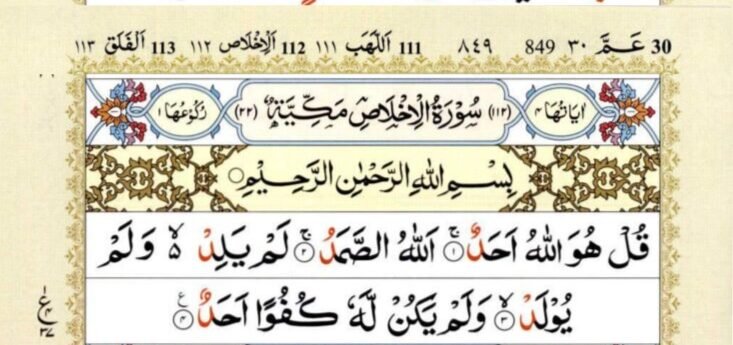 30 عَمَّ ٣٠ 849 ٨٤٩ 111 اَللَّهَب ١١١ 112 اَلْاِخْلَاص ١١٢ 113 اَلْفَلَق ١١٣
اٰيَاتُهَا ٤ (١١٢) سُوْرَةُ الْاِخْلَاصِ مَكِّيَّةٌ (٢٢) رُكُوْعُهَا ١
بِسْمِ اللهِ الرَّحْمٰنِ الرَّحِيْمِ
قُلْ هُوَ اللهُ اَحَدٌ ۚ ١ اَللهُ الصَّمَدُ ۚ ٢ لَمْ يَلِدْ ۙ ۵ وَلَمْ
يُوْلَدْ ۙ ٣ وَلَمْ يَكُنْ لَّهٗ كُفُوًا اَحَدٌ ٤ ع
ع ٤ ٣٧